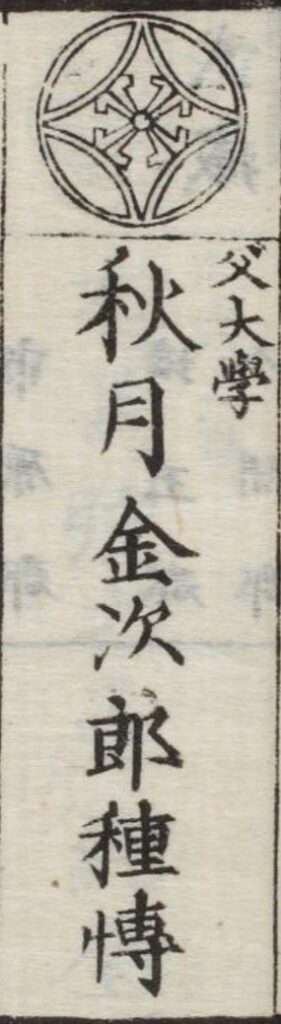 父大學
秋月金次郎種慱